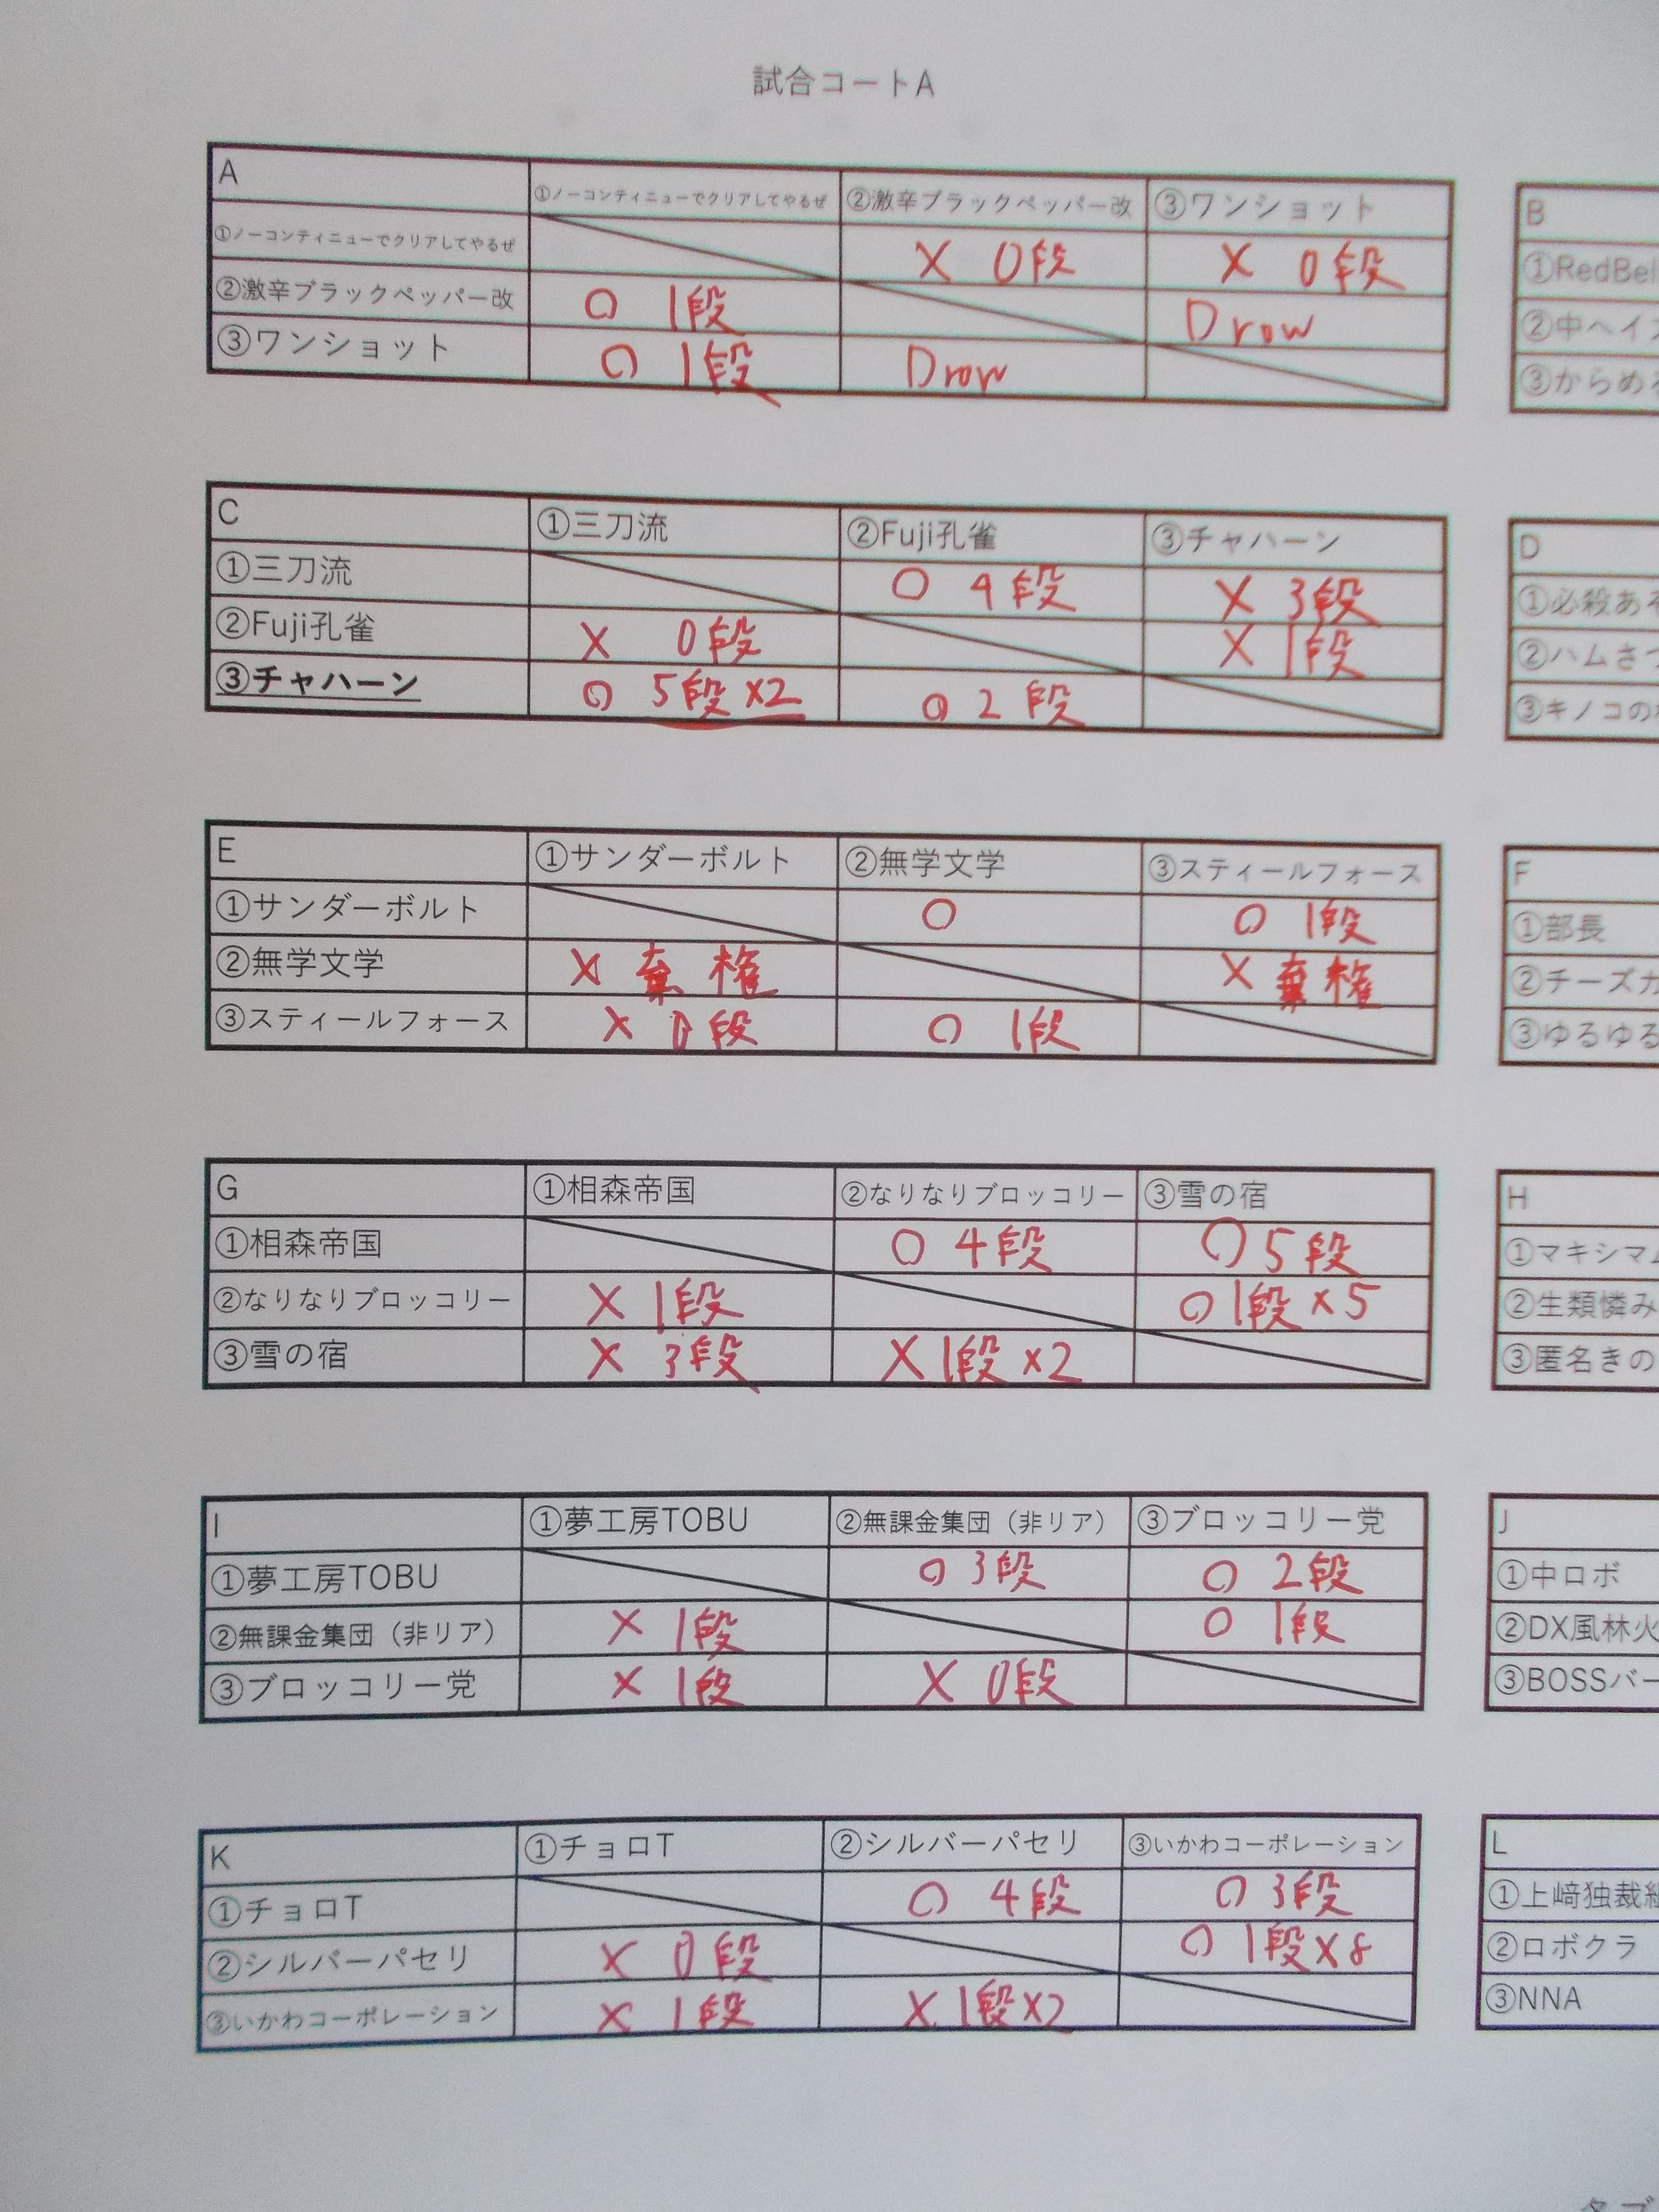 試合コートA
A ①ノーコンティニューでクリアしてやるぜ ②激辛ブラックペッパー改 ③ワンショット
①ノーコンティニューでクリアしてやるぜ X 0段 X 0段
②激辛ブラックペッパー改 O 1段 Drow
③ワンショット O 1段 Drow
B
①RedBel
②中ヘイズ
③からめる
C ①三刀流 ②Fuji孔雀 ③チャハーン
①三刀流 O 4段 X 3段
②Fuji孔雀 X 0段 X 1段
③チャハーン O 5段×2 O 2段
D
①必殺あそ
②ハムさつ
③キノコの
E ①サンダーボルト ②無学文学 ③スティールフォース
①サンダーボルト O O 1段
②無学文学 X 棄権 X 棄権
③スティールフォース X 0段 O 1段
F
①部長
②チーズカ
③ゆるゆる
G ①相森帝国 ②なりなりブロッコリー ③雪の宿
①相森帝国 O 4段 O 5段
②なりなりブロッコリー X 1段 O 1段×5
③雪の宿 X 3段 X 1段×2
H
①マキシマム
②生類憐み
③匿名きの
I ①夢工房TOBU ②無課金集団（非リア） ③ブロッコリー党
①夢工房TOBU O 3段 O 2段
②無課金集団（非リア） X 1段 O 1段
③ブロッコリー党 X 1段 X 0段
J
①中ロボ
②DX風林火
③BOSSバー
K ①チョロT ②シルバーパセリ ③いかわコーポレーション
①チョロT O 4段 O 3段
②シルバーパセリ X 0段 O 1段×8
③いかわコーポレーション X 1段 X 1段×2
L
①上﨑独裁組
②ロボクラ
③NNA